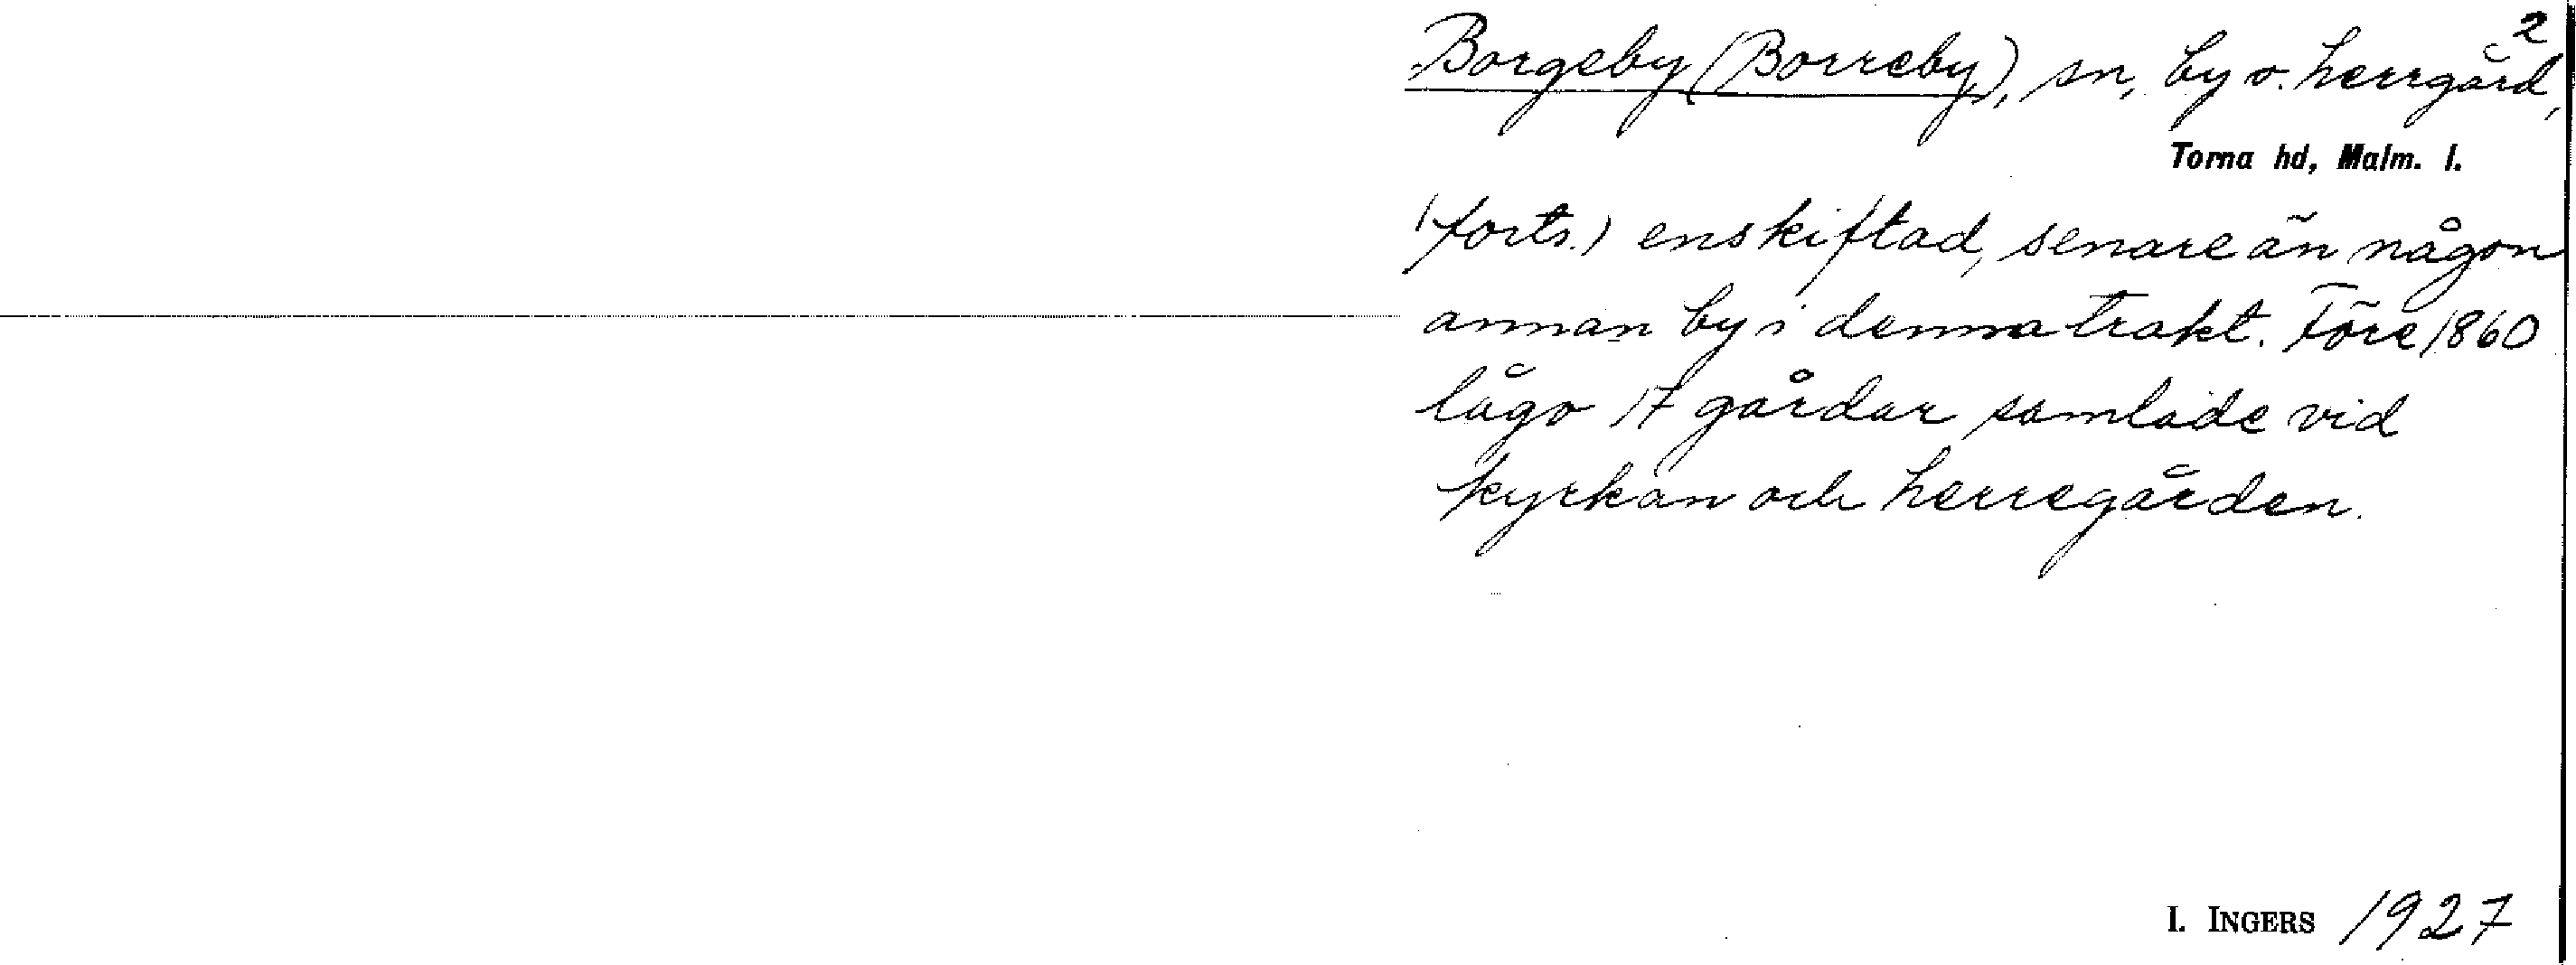 2
Borgeby (Borreby), sn, by o. herrgård,
Torna hd, Malm. l.
(forts.) enskiftad, senare än någon
annan by i denna trakt. Före 1860
lågo 17 gårdar samlade vid
kyrkan och herregården.
I. INGERS 1927